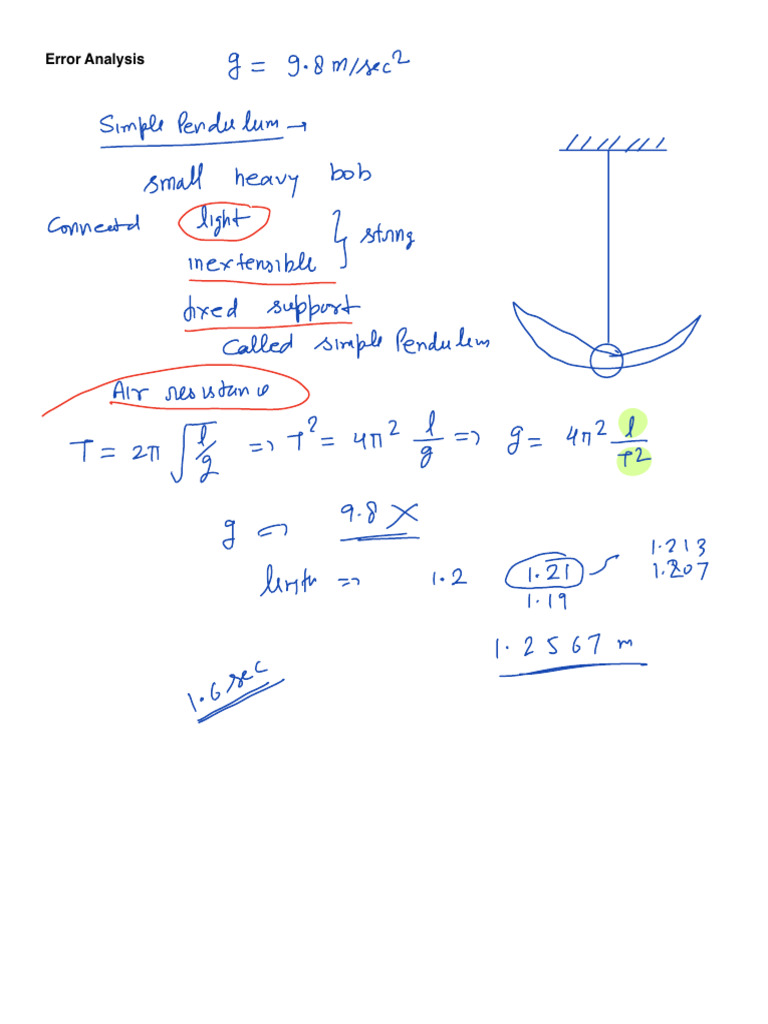 Error Analysis
g = 9.8 m/sec²
Simple Pendulum →
small heavy bob
Connectd light } string
inextensible
fixed support
Called simple Pendulum
Air resistance
T = 2π √(l/g) => T² = 4π² l/g => g = 4π² l/T²
g 9.8 X
1.213
length => 1.2 1.21 1.207
1.19
1.2567 m
1.6 sec